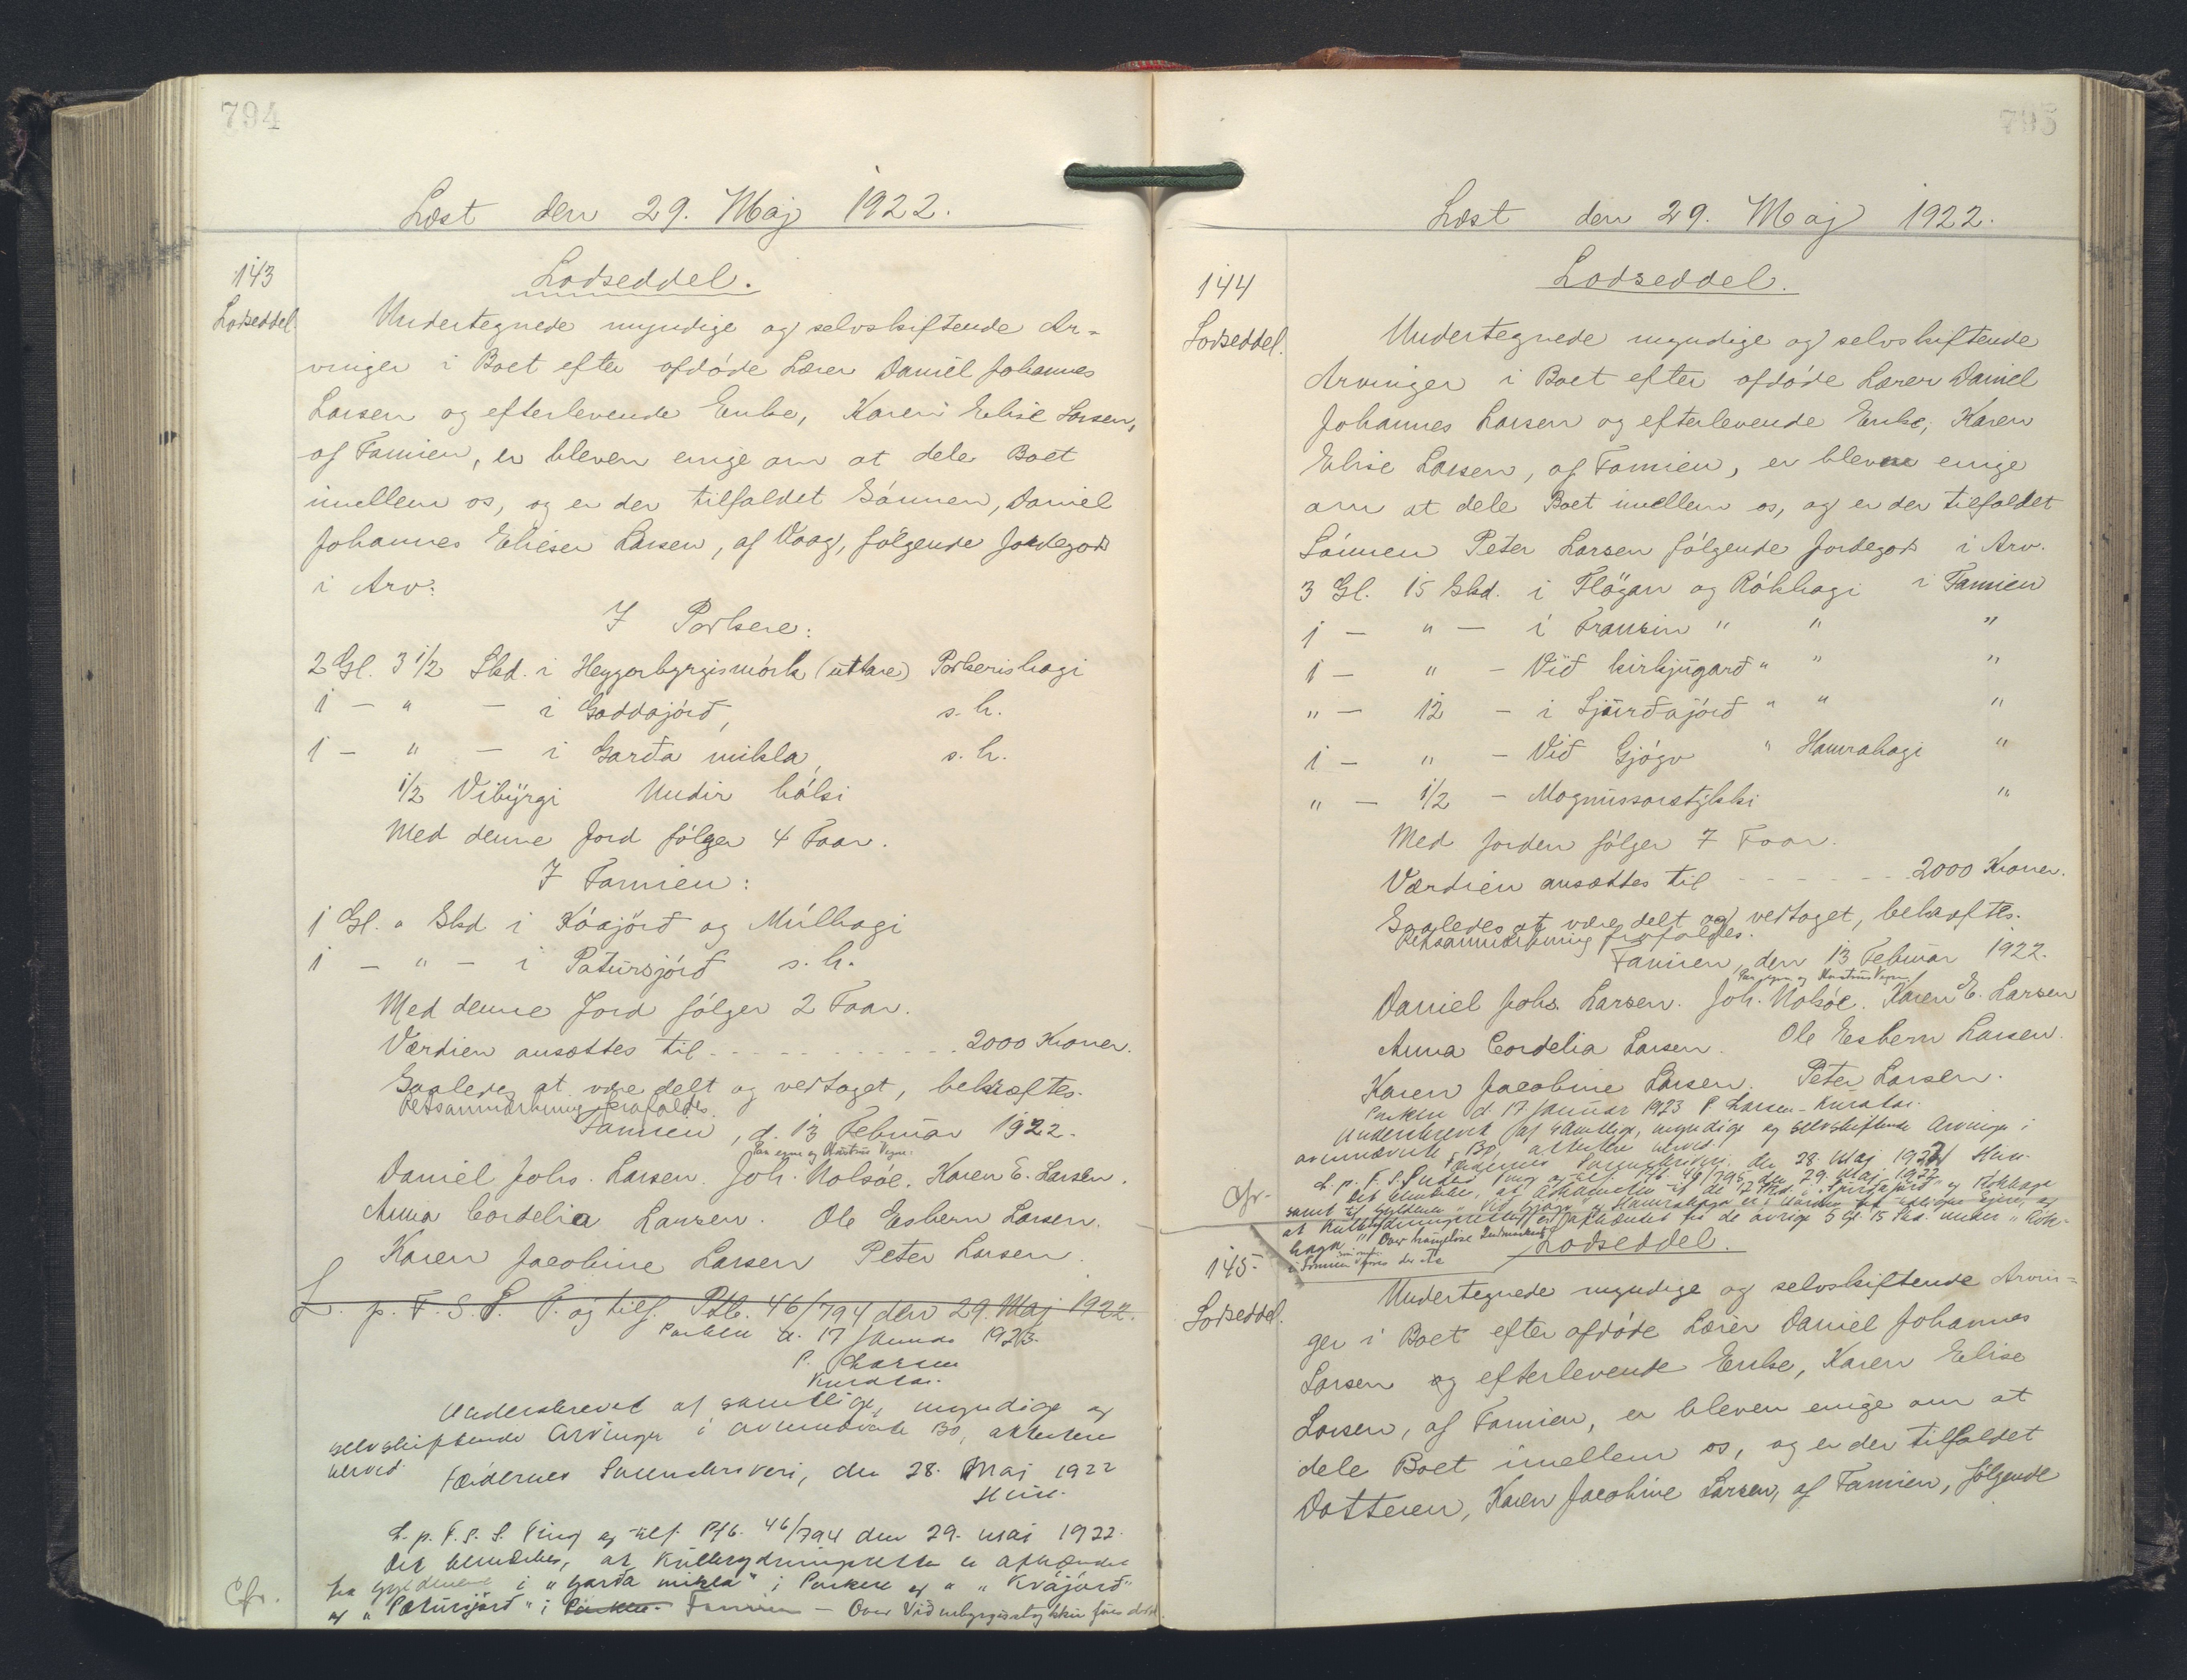 794
Læst den 29. Maj 1922.
143
Lodseddel.
Lodseddel.
Undertegnede myndige og selvskiftende Ar-
vinger i Boet efter afdøde Lærer Daniel Johannes
Larsen og efterlevende Enke, Karen Elise Larsen,
af Famien, er bleven enige om at dele Boet
imellem os, og er der tilfaldet Sønnen, Daniel
Johannes Elieser Larsen, af Vaag, følgende Jordegods
i Arv:
I Porkere:
2 Gl. 3 1/2 Skd. i Heygorbyrgismørk (uttare) Porkerishagi
1 - " - i Gaddajørð, s. h.
1 - " - i Garða mikla, s. h.
1/2 Vibýrgi Undir hálsi
Med denne Jord følger 4 Faar.
I Famien:
1 Gl. " Skd i Kóajørð og Múlhagi
1 - " - i Patursjørð s. h.
Med denne Jord følger 2 Faar.
Værdien ansættes til - - - - - - - - 2000 Kroner.
Saaledes at være delt og vedtaget, bekræftes.
Retsanmærkning frafaldes.
Famien, d. 13 Februar 1922.
Paa egne og Hustrus Vegne:
Daniel Johs. Larsen. Joh. Nolsøe. Karen E. Larsen.
Anna Cordelia Larsen. Ole Esbern Larsen.
Karen Jacobine Larsen Peter Larsen.
L. p. F. S. S. T. og tilf. Ptb. 46/794 den 29. Maj 1922.
Porkere d. 17 Januar 1923.
P. Larsen
Kurator.
Underskrevet af samtlige, myndige og
selvskiftende Arvinger i ovennævnte Bo, attesteres
herved
Færøernes Sorenskriveri, den 28. Maj 1922
L. p. F. S. S. Ting og tilf. Ptb. 46/794 den 29. Maj 1922.
Det bemærkes, at Kulbrydningsretten er afhændet
fra Gyldenene i "Garða mikla" i Porkere og " " Kvájørð"
Cfr.
og "Patursjørð" i Porkere Famien - Over Viðurbyrgisstykkir
795
Læst den 29. Maj 1922.
144
Lodseddel.
Lodseddel.
Undertegnede myndige og selvskiftende
Arvinger i Boet efter afdøde Lærer Daniel
Johannes Larsen og efterlevende Enke, Karen
Elise Larsen, af Famien, er blevne enige
om at dele Boet imellem os, og er der tilfaldet
Sønnen Peter Larsen følgende Jordegods i Arv.
3 Gl. 15 Skd. i Fløgan og Rókhagi i Famien
1 - " - i Transin " " "
1 - " - Við kirkjúgarð " " "
" - 12 - i Sjúrðajørð " " "
1 - " - Við Gjógv " Hamrahagi "
" - 1/2 - Mognussarstýkki "
Med Jorden følger 7 Faar.
Værdien ansættes til - - - - - - 2000 Kroner.
Saaledes at være delt og vedtaget, bekræftes.
Retsanmærkning frafaldes.
Famien, den 13 Februar 1922.
Paa egne og Hustrus Vegne
Daniel Johs. Larsen. Joh. Nolsøe. Karen E. Larsen
Anna Cordelia Larsen. Ole Esbern Larsen.
Karen Jacobine Larsen. Peter Larsen.
Porkere d. 17 Januar 1923 P. Larsen - Kurator.
Underskrevet af samtlige, myndige og selvskiftende Arvinger i
ovennævnte Bo, attesteres herved.
Færøernes Sorenskriveri, den 28. Maj 1922
L. p. F. S. S. Ting og tilf. Ptb. 46/795 den 29. Maj 1922.
Cfr.
Det bemærkes, at Adkomsten til de 12 Skd. i "Sjúrðajørð" og Rókhaga
samt til Gyldenen "Við Gjógv" og Hamrahaga er
at Kulbrydningsretten er afhændet fra de øvrige 5 Gl. 15 Skd. under "Rók-
haga"
145.
Lodseddel.
Lodseddel.
Undertegnede myndige og selvskiftende Arvin-
ger i Boet efter afdøde Lærer Daniel Johannes
Larsen og efterlevende Enke, Karen Elise
Larsen, af Famien, er bleven enige om at
dele Boet imellem os, og er der tilfaldet
Datteren, Karen Jacobine Larsen, af Famien, følgende